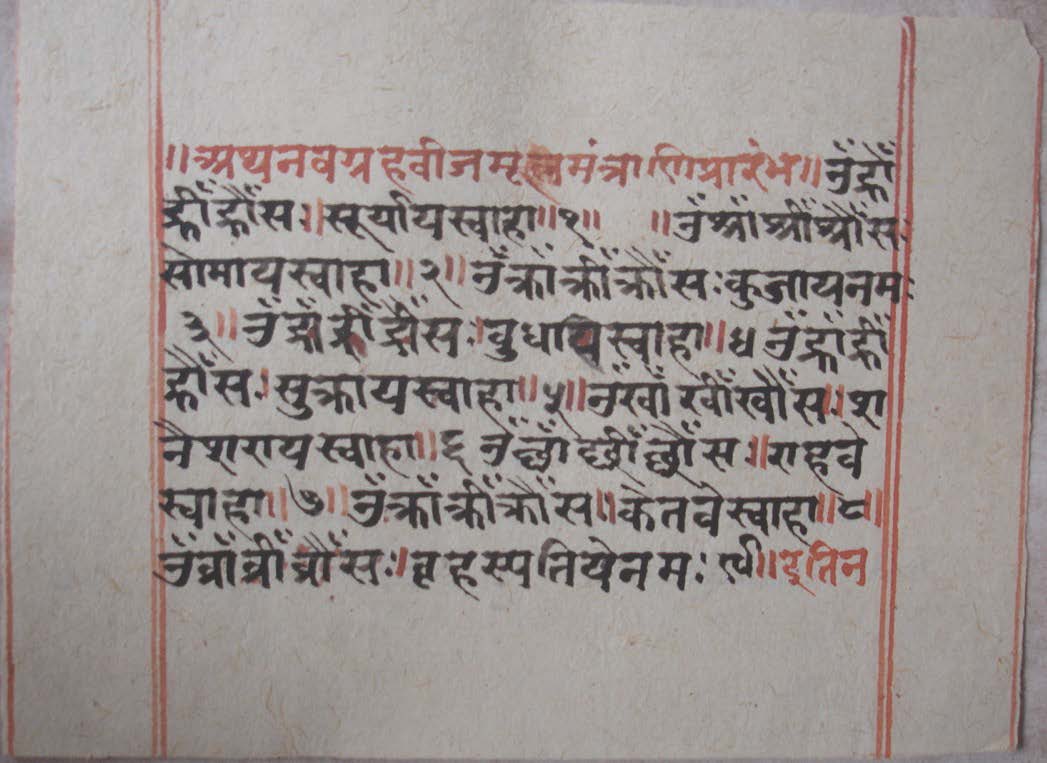 ॥अथनवग्रहवीजमूलमंत्राणिप्रारंभ॥ ॐह्राँ
ह्रीँह्रौँसः॥सूर्यायस्वाहा॥१॥ ॥ॐश्राँश्रीँश्रौँसः
सोमायस्वाहा॥२॥ ॐक्राँक्रीँक्रौँसःकुजायनमः
३॥ॐद्राँद्रीँद्रौँसः।वुधायस्वाहा॥४ ॐह्राँह्रीँ
ह्रौँसः।सुक्रायस्वाहा॥५॥ॐखाँखीँखौँसः॥श
नैशरायस्वाहा॥६ ॐछ्राँछ्रीँछ्रौँसः॥राहवे
स्वाहा॥७॥ ॐक्राँक्रीँक्रौँस॥केतवेस्वाहा॥८॥
ॐव्राँव्रीँव्रौँसः।वृहस्पतियेनमः ९॥इतिन